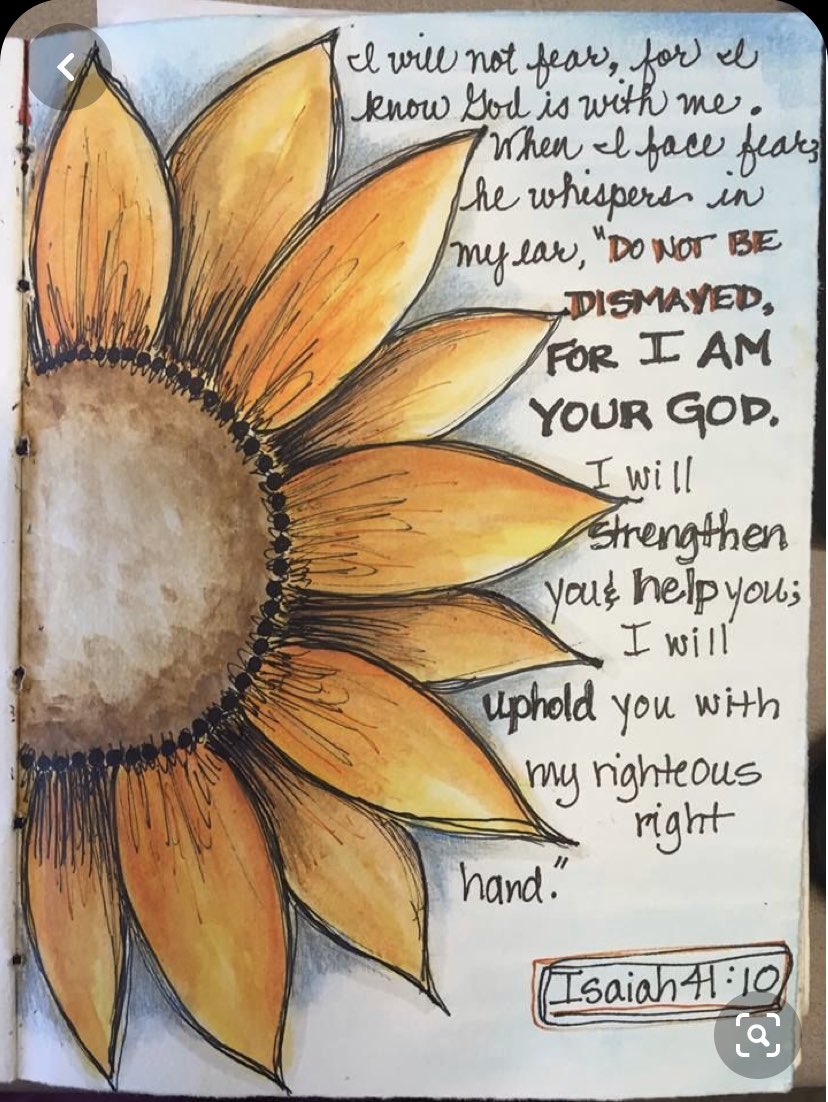 I will not fear, for I
know God is with me.
When I face fear,
he whispers in
my ear, "DO NOT BE
DISMAYED,
FOR I AM
YOUR GOD.
I will
strengthen
you & help you;
I will
uphold you with
my righteous
right
hand."
Isaiah 41:10